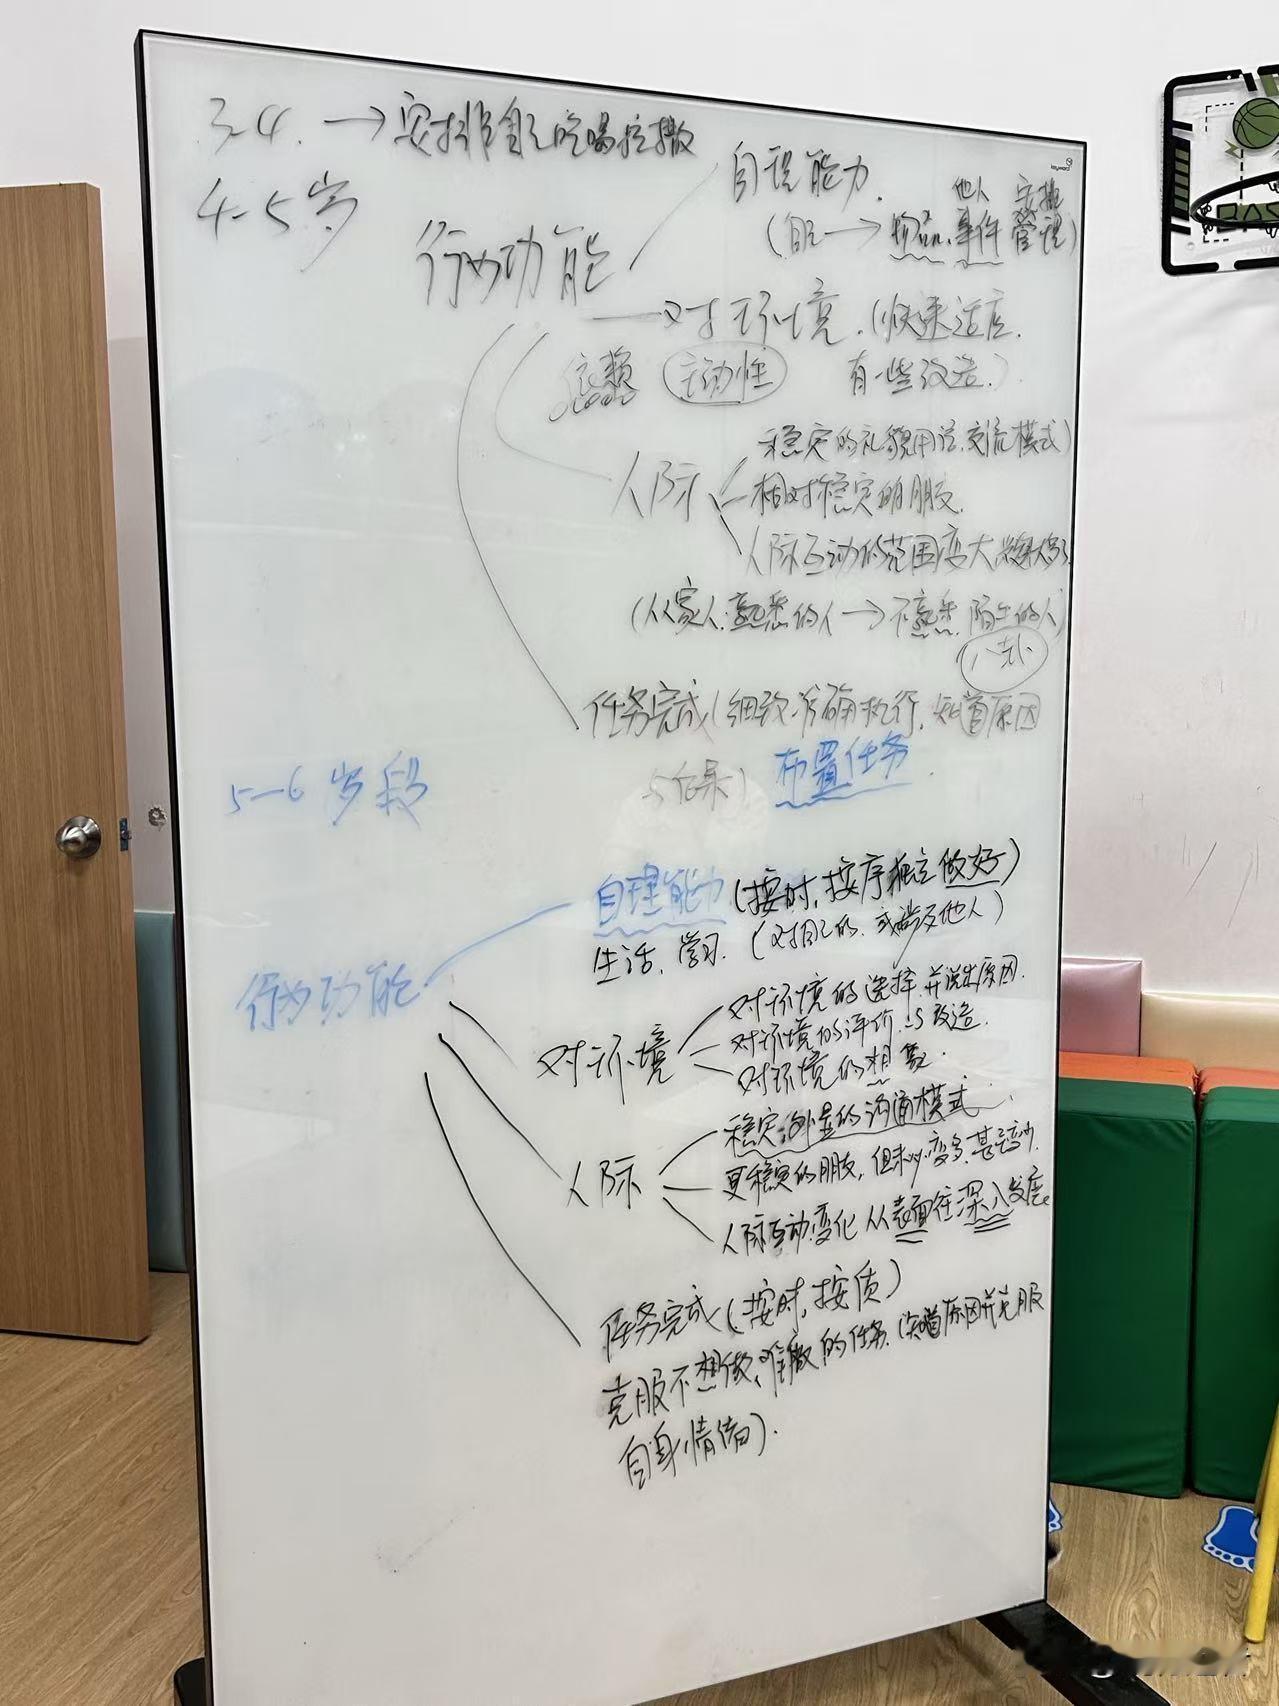 3-4. → 安排自己吃喝拉撒
4-5岁
行为功能
自理能力.
他人 安排
(自己 → 物品、事件 管理)
对环境. (快速适应.
依赖 主动性 有一些改造.)
人际
稳定的礼貌用语.交流模式)
相对稳定的朋友.
人际互动的范围变大
(从家人.熟悉的人 → 不熟悉.陌生的人)
八卦
任务完成(细致.准确执行. 知道原因
与后果) 布置任务.
5-6岁段
行为功能
自理能力 (按时,按序独立做好)
生活、学习. (对自己的. 或涉及他人)
对环境
对环境的选择.并说出原因.
对环境的评价.与改造.
对环境的想象.
人际
稳定 的沟通模式.
更稳定的朋友, 但 变多.甚至变少.
人际互动.变化 从表面往深入发展.
任务完成(按时,按质)
克服不想做、难做的任务. (知道原因并克服
自身情绪).